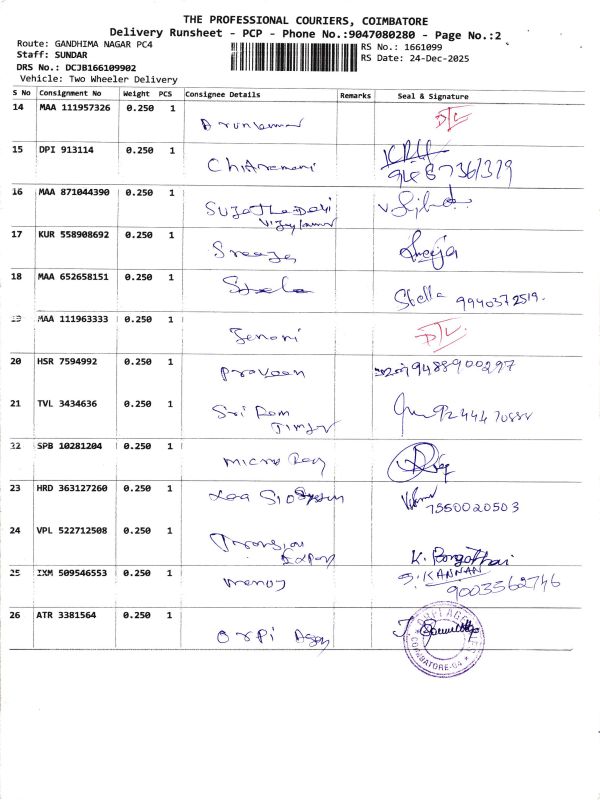 THE PROFESSIONAL COURIERS, COIMBATORE
Delivery Runsheet - PCP - Phone No.:9047080280 - Page No.:2
Route: GANDHIMA NAGAR PC4
RS No.: 1661099
Staff: SUNDAR
RS Date: 24-Dec-2025
DRS No.: DCJB166109902
Vehicle: Two Wheeler Delivery
S No Consignment No Weight PCS Consignee Details Remarks Seal & Signature
14 MAA 111957326 0.250 1 Arunkumar D/L
15 DPI 913114 0.250 1
16 MAA 871044390 0.250 1 Sujatha Devi
Vijaykumar
17 KUR 558908692 0.250 1 Sreeja Sreeja
18 MAA 652658151 0.250 1 Stella Stella 9940372519.
19 MAA 111963333 0.250 1 D/L
20 HSR 7594992 0.250 1 Praveen 9488900297
21 TVL 3434636 0.250 1 Sri Ram
Timber
22 SPB 10281204 0.250 1 Micro
23 HRD 363127260 0.250 1 7550020503
24 VPL 522712508 0.250 1 K.
25 IXM 509546553 0.250 1 Manoj S. KANNAN
9003562746
26 ATR 3381564 0.250 1
COIMBATORE-04